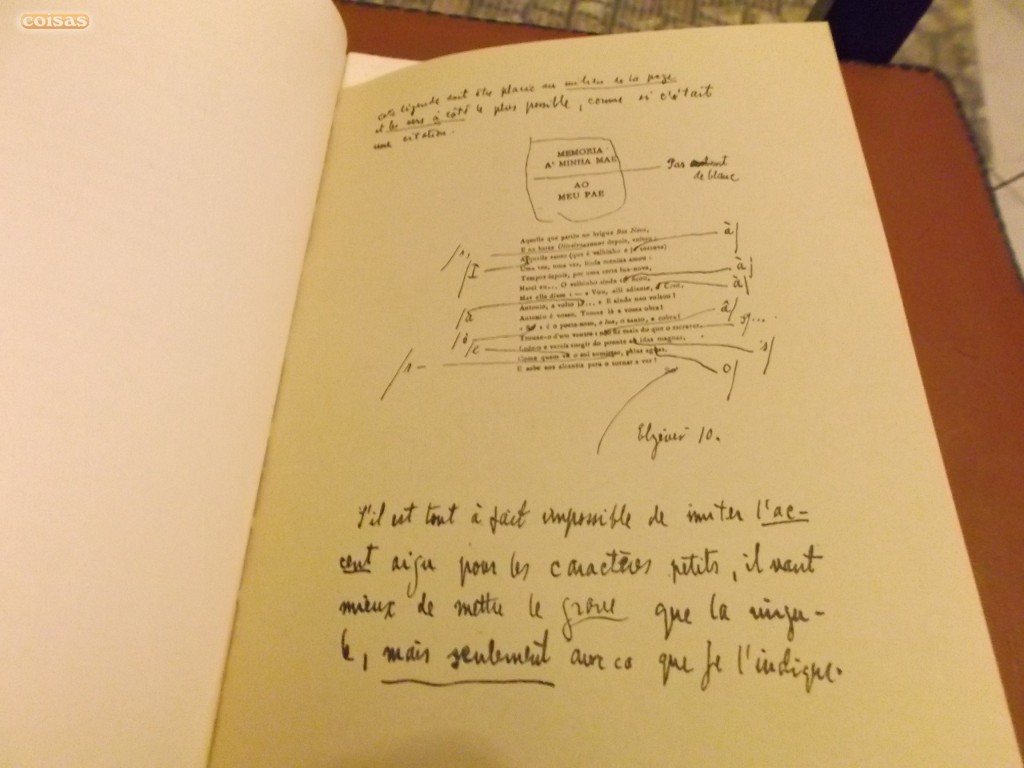 coisas
cette légende doit être placée au milieu de la page
et les vers à côté le plus possible, comme si c'était
une citation.
MEMORIA
A' MINHA MÃE
AO
MEU PAE
Pas
de blanc
Aquelle que partiu no brigue Boa Nova,
E na barca Oliveira, annos depois, voltou;
Aquelle santo (que é velhinho e
Uma vez, uma vez, linda menina amou:
Tempos depois, por uma certa lua-nova,
Nasci eu... O velhinho ainda
Mas ella disse: — «Vou, alli adiante, á Cova,
Antonio, e volto já...» E ainda não voltou!
Antonio é vosso. Tomae lá a vossa obra!
é o poeta-nato, o lua, o santo, a cobra!
Trouxe-o d'um ventre: não fiz mais do que o escrever...
Lede-o e vereis surgir do poente as idas magoas,
Como quem vê o sol sumir-se, pelas agoas,
E sobe aos alcantis para o tornar a ver!
à
I
à
à
à
s
o
Elzévir 10.
S'il est tout à fait impossible de imiter l'ac-
cent aigu pour les caractères petits, il vaut
mieux de mettre le grave que la virgu-
le, mais seulement que je l'indique.